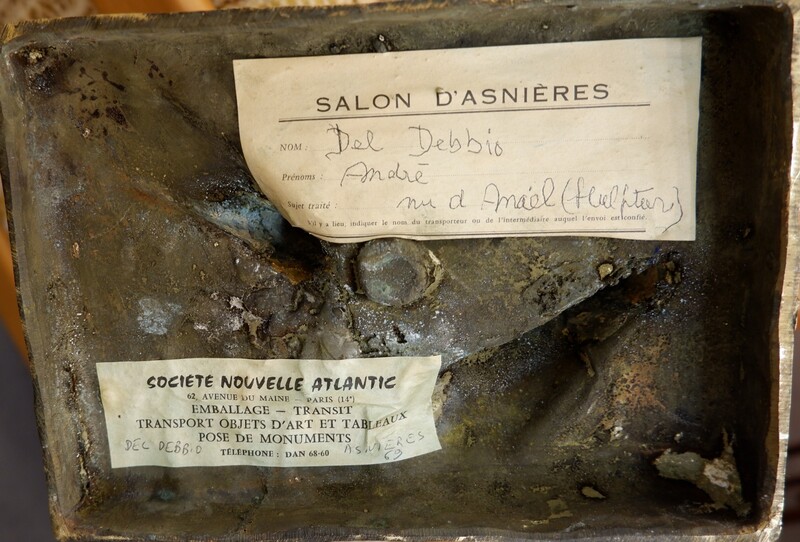 SALON D'ASNIÈRES
NOM : Del Debbio
Prénoms : André
Sujet traité : nu d Anaël (Sculpteur)
S'il y a lieu, indiquer le nom du transporteur ou de l'intermédiaire auquel l'envoi est confié.
SOCIÉTÉ NOUVELLE ATLANTIC
62, AVENUE DU MAINE — PARIS (14e)
EMBALLAGE — TRANSIT
TRANSPORT OBJETS D'ART ET TABLEAUX
POSE DE MONUMENTS
DEL DEBBIO ASNIERES
TÉLÉPHONE : DAN 68-60 69